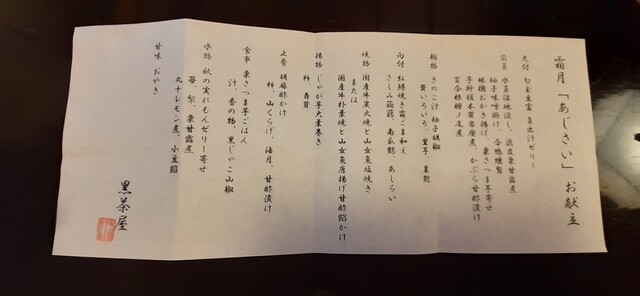 霜月「あじさい」お献立
先付 勾玉豆富 旨出汁ゼリー
前菜 水菜湿地浸し、渋皮栗甘露煮
柚子味噌掛け、合鴨燻製
銀杏おかき揚げ、栗さつま芋寄せ
百合根
椀物 きのこ汁 柚子胡椒
茸いろいろ、里芋、粟麩
向付 紅鱒焼き霜ごま和え
さしみ蒟蒻、南瓜麩、あしらい
焼物 国産牛炭火焼と山女魚塩焼き
または
国産牛朴葉焼と山女魚唐揚げ甘酢餡かけ
揚物 じゃが芋大葉巻き
柿、舞茸
止肴 胡麻酢かけ
柿、山くらげ、海月、甘酢漬け
食事 栗さつま芋ごはん
汁、香の物、黒じゃこ山椒
水物 秋の実れもんゼリー寄せ
苺、梨、栗甘露煮
丸十レモン煮、小豆餡
甘味 おやき
黒茶屋